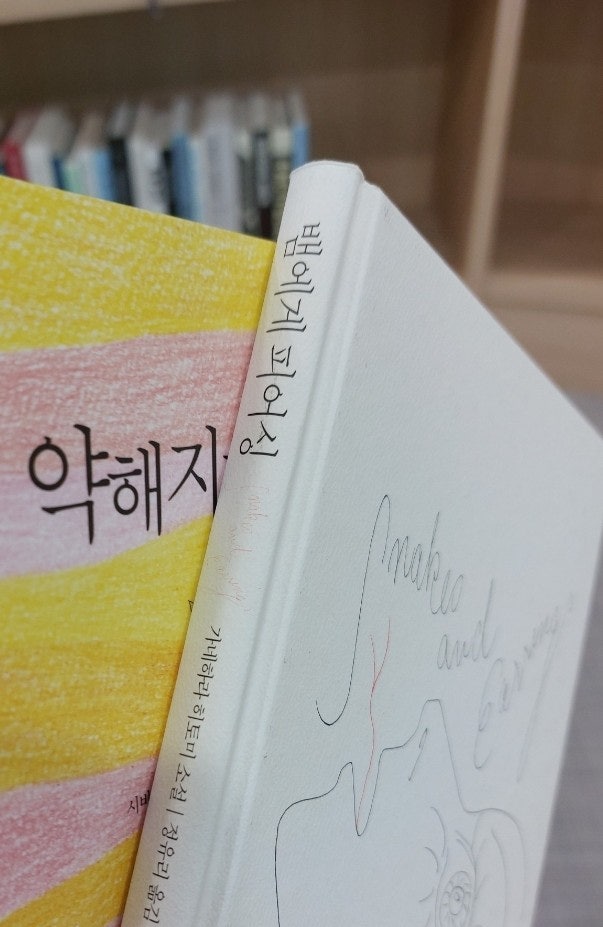 약해지
시바
뱀에게 피어싱
가네하라 히토미 소설 | 정유리 옮김
Snakes
and
Earrings